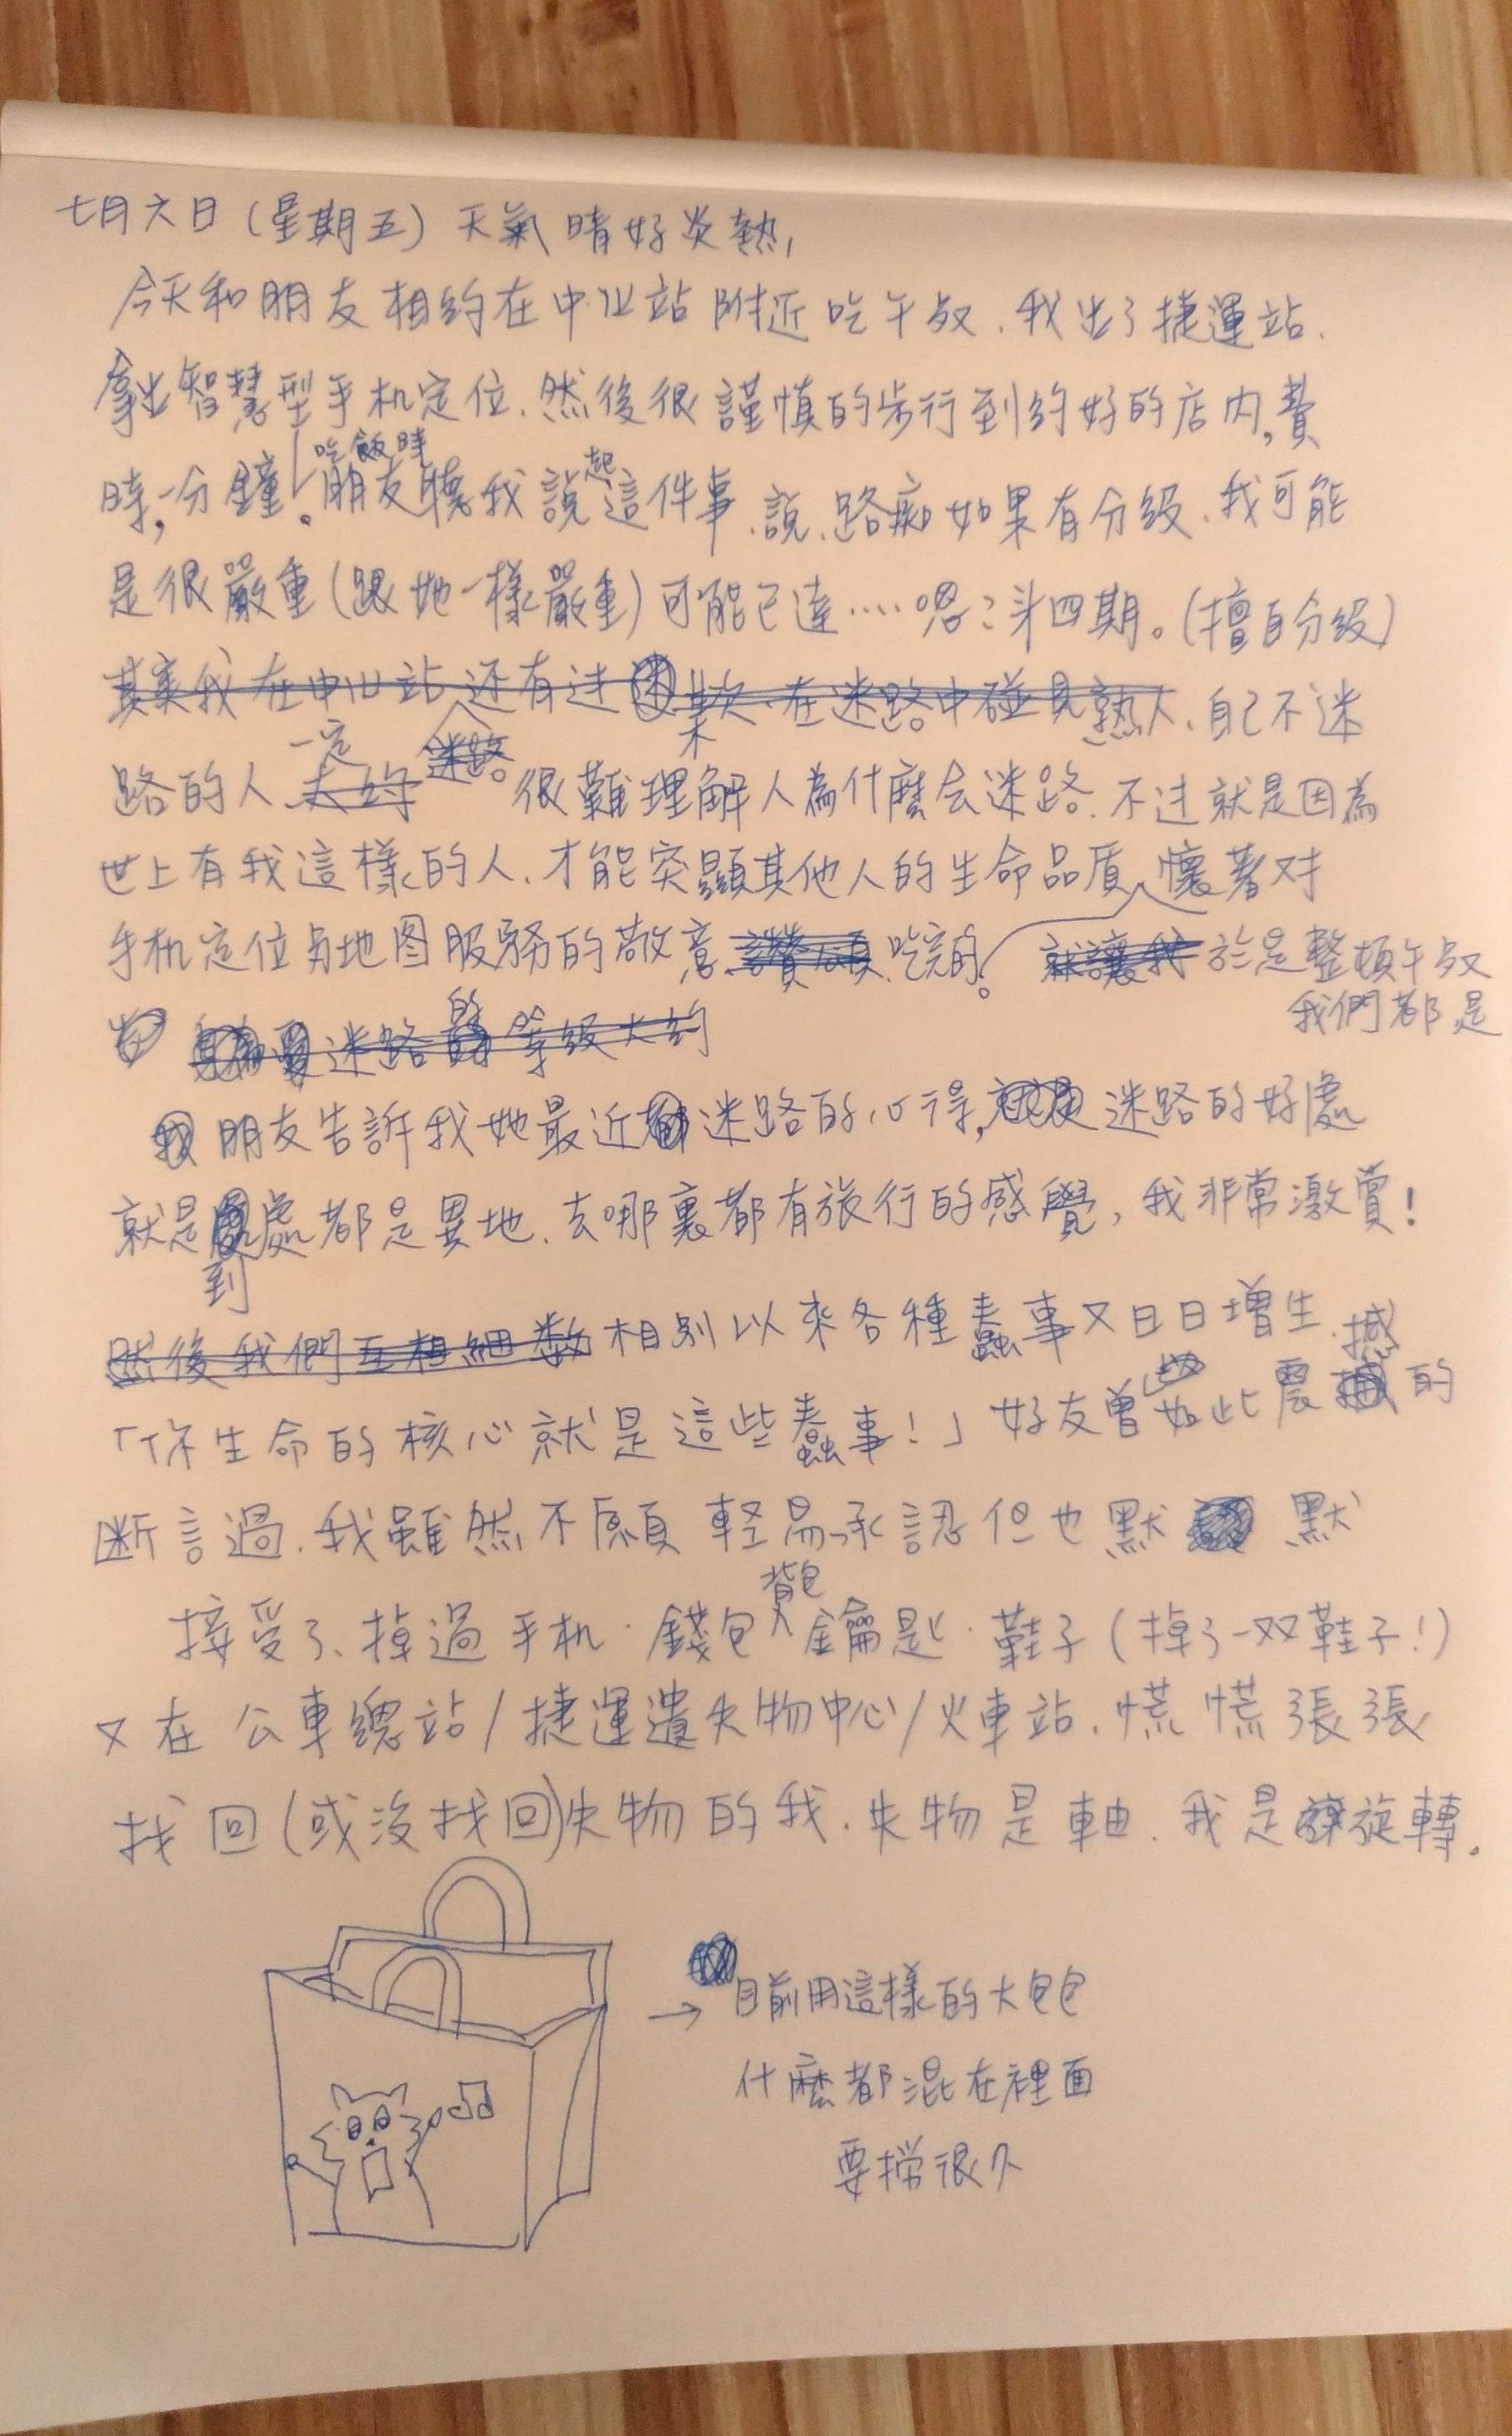 七月六日(星期五)天氣晴好炎熱,
今天和朋友相約在中山站附近吃午飯、我出了捷運站、
拿出智慧型手机定位、然後很謹慎的步行到約好的店内,費
吃飯時 起
時,一分鐘。朋友聽我說這件事、說、路痴如果有分級、我可能
是很嚴重(跟她一樣嚴重)可能已達……嗯?第四期。(擅自分級)
其实我在中山站还有过 某次 在迷路中碰見熟人、自己不迷
一定 迷路
路的人 很難理解人為什麼会迷路、不过就是因為
世上有我這樣的人、才能突顯其他人的生命品質 懷著对
手机定位与地图服務的敬意 讚頌 吃完的。 就讓我 於是整頓午飯
我們都是
迷路的等级大約
朋友告訴我她最近迷路的心得, 迷路的好處
就是處都是異地、去哪裏都有旅行的感覺,我非常激賞!
到
然後我們互相細数相别以來各種蠢事又日日增生、撼
「你生命的核心就是這些蠢事!」好友曾如此震的
断言過、我雖然不願輕易承認但也默 默
背包
接受了、掉過手机·錢包鑰匙·鞋子(掉了一双鞋子!)
又在公車總站/捷運遺失物中心/火車站、慌慌張張
找回(或沒找回)失物的我、失物是軸、我是旋轉。
→目前用這樣的大包包
什麼都混在裡面
要撈很久